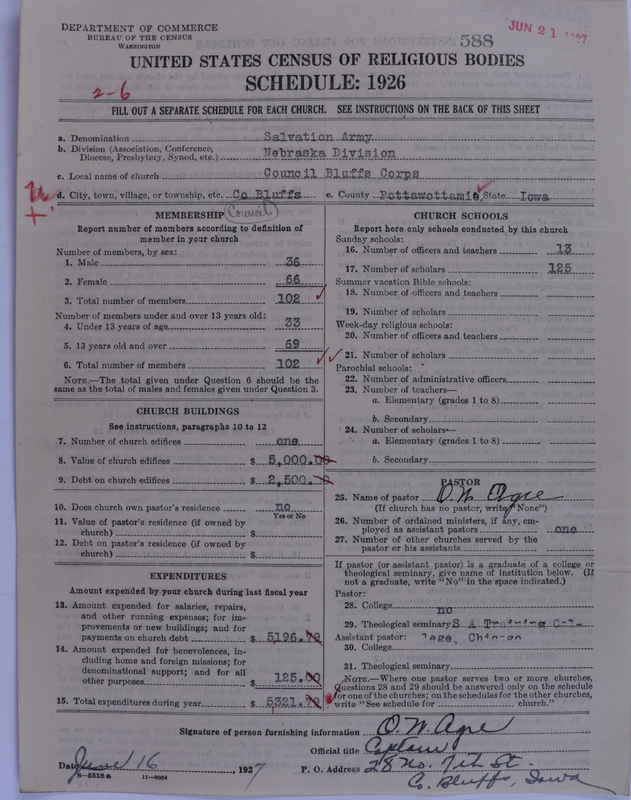 DEPARTMENT OF COMMERCE
BUREAU OF THE CENSUS
WASHINGTON
588
JUN 21 1927
UNITED STATES CENSUS OF RELIGIOUS BODIES
SCHEDULE: 1926
2-6
FILL OUT A SEPARATE SCHEDULE FOR EACH CHURCH. SEE INSTRUCTIONS ON THE BACK OF THIS SHEET
a. Denomination Salvation Army
b. Division (Association, Conference, Diocese, Presbytery, Synod, etc.) Nebraska Division
c. Local name of church Council Bluffs Corps
d. City, town, village, or township, etc. Co Bluffs e. County Pottawottamie State Iowa
(Council)
MEMBERSHIP
Report number of members according to definition of
member in your church
Number of members, by sex:
1. Male 36
2. Female 66
3. Total number of members 102
Number of members under and over 13 years old:
4. Under 13 years of age 33
5. 13 years old and over 69
6. Total number of members 102
NOTE.—The total given under Question 6 should be
same as the total of males and females given under Question 3.
CHURCH BUILDINGS
See instructions, paragraphs 10 to 12
7. Number of church edifices one
8. Value of church edifices $ 5,000.00
9. Debt on church edifices $ 2,500.
10. Does church own pastor's residence no
Yes or No
11. Value of pastor's residence (if owned by
church) $
12. Debt on pastor's residence (if owned by
church) $
EXPENDITURES
Amount expended by your church during last fiscal year
13. Amount expended for salaries, repairs,
and other running expenses; for im-
provements or new buildings; and for
payments on church debt $ 5196.
14. Amount expended for benevolences, in-
cluding home and foreign missions; for
denominational support; and for all
other purposes $ 125.00
15. Total expenditures during year $ 5321.
CHURCH SCHOOLS
Report here only schools conducted by this church
Sunday schools:
16. Number of officers and teachers 13
17. Number of scholars 125
Summer vacation Bible schools:
18. Number of officers and teachers
19. Number of scholars
Week-day religious schools:
20. Number of officers and teachers
21. Number of scholars
Parochial schools:
22. Number of administrative officers
23. Number of teachers—
a. Elementary (grades 1 to 8)
b. Secondary
24. Number of scholars—
a. Elementary (grades 1 to 8)
b. Secondary
PASTOR
25. Name of pastor O.W. Agre
(If church has no pastor, write "None")
26. Number of ordained ministers, if any, em-
ployed as assistant pastors one
27. Number of other churches served by the
pastor or his assistants
If pastor (or assistant pastor) is a graduate of a college or
theological seminary, give name of institution below. (If
not a graduate, write "No" in the space indicated.)
Pastor:
28. College no
29. Theological seminary S A Training Col-
Assistant pastor: lege, Chicago
30. College
31. Theological seminary
NOTE.—Where one pastor serves two or more churches,
Questions 28 and 29 should be answered only on the schedule
for one of the churches; on the schedules for the other churches,
write "See schedule for church."
Signature of person furnishing information O.W. Agre
Official title Captain
Date June 16, 1927 P. O. Address 28 No. 7th St.
Co. Bluffs, Iowa
8-5318 a 11-9024